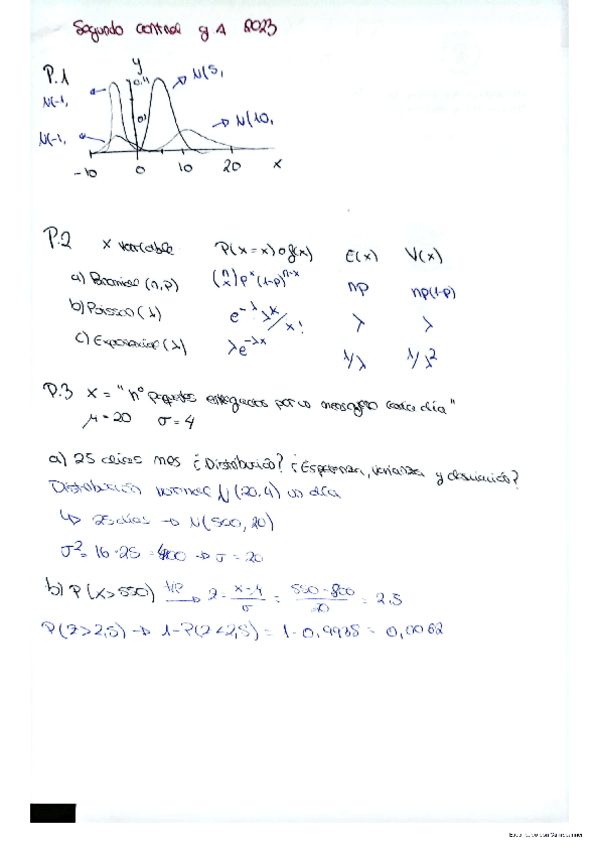 Segundo control g 1 2023
P.1
y
0.4
N(5,
N(-1,
N(10,
N(-1,
-10 0 10 20 x
P.2 x variable P(x=x) o f(x) E(x) V(x)
a) Binomial (n,p) (n x) p^x (1-p)^n-x np np(1-p)
b) Poisson (λ) e^-λ λ^x/x! λ λ
c) Exponencial (λ) λe^-λx 1/λ 1/λ²
P.3 x = "nº paquetes entregados por un mensajero cada día"
μ = 20 σ = 4
a) 25 días mes ¿Distribución? ¿Esperanza, varianza y desviación?
Distribución normal N(20,4) un día
↳ 25 días → N(500, 20)
σ² = 16·25 = 400 → σ = 20
b) P(x>550) tip → z = x-μ/σ = 550-500/20 = 2,5
P(z>2,5) → 1-P(z<2,5) = 1-0,9938 = 0,0062